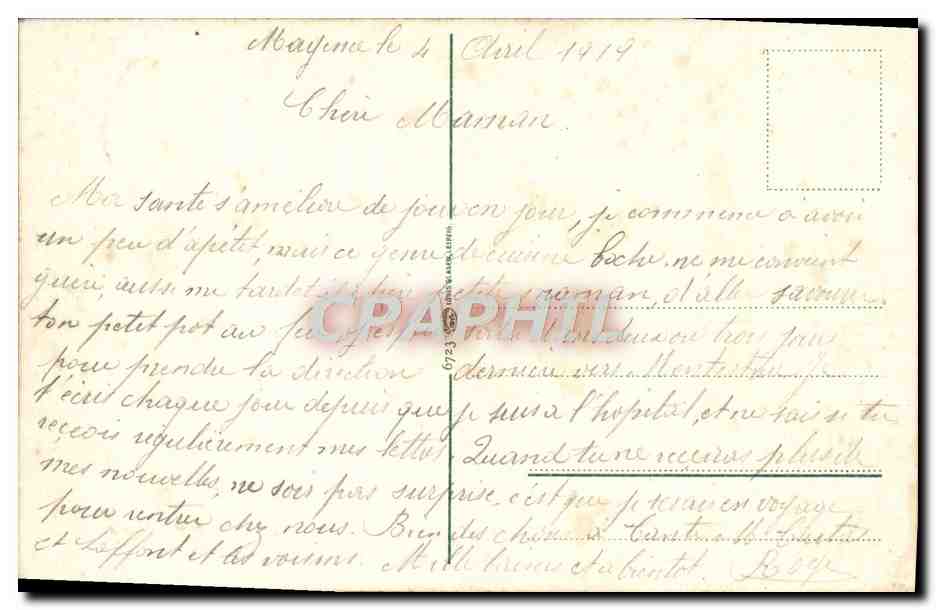 Mayence le 4 Avril 1919
Chère Maman
Ma santé s'améliore de jour en jour, je commence a avoir
un peu d'apétit, mais ce genre de cuisine boche ne me convient
guère, aussi me tarde petite maman, d'aller savourer
ton petit pot au feu deux ou trois jours
pour prendre la direction dernière vers
t'écris chaque jour depuis que je suis a l'hopital, et ne sais si tu
reçois régulièrement mes lettres. Quand tu ne recevras plus de
mes nouvelles, ne sois pas surprise c'est que je serai en voyage
pour rentrer chez nous. Bien des choses à Tante
et Laffont et les voisins. Mille baisers et a bientot.
6723
LOUIS GLASER, LEIPZIG
CPAPHIL